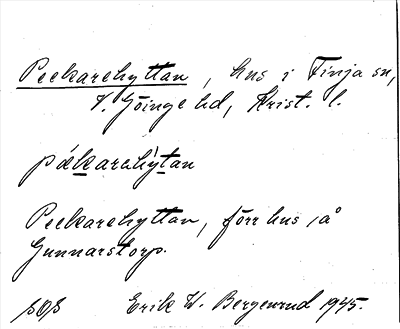 Peekarehyttan, hus i Finja sn,
V. Göinge hd, Krist. l.
pækarehy̍tan
Peekarehyttan, förr hus å
Gunnarstorp.
sos Erik W. Bergenrud 1945.